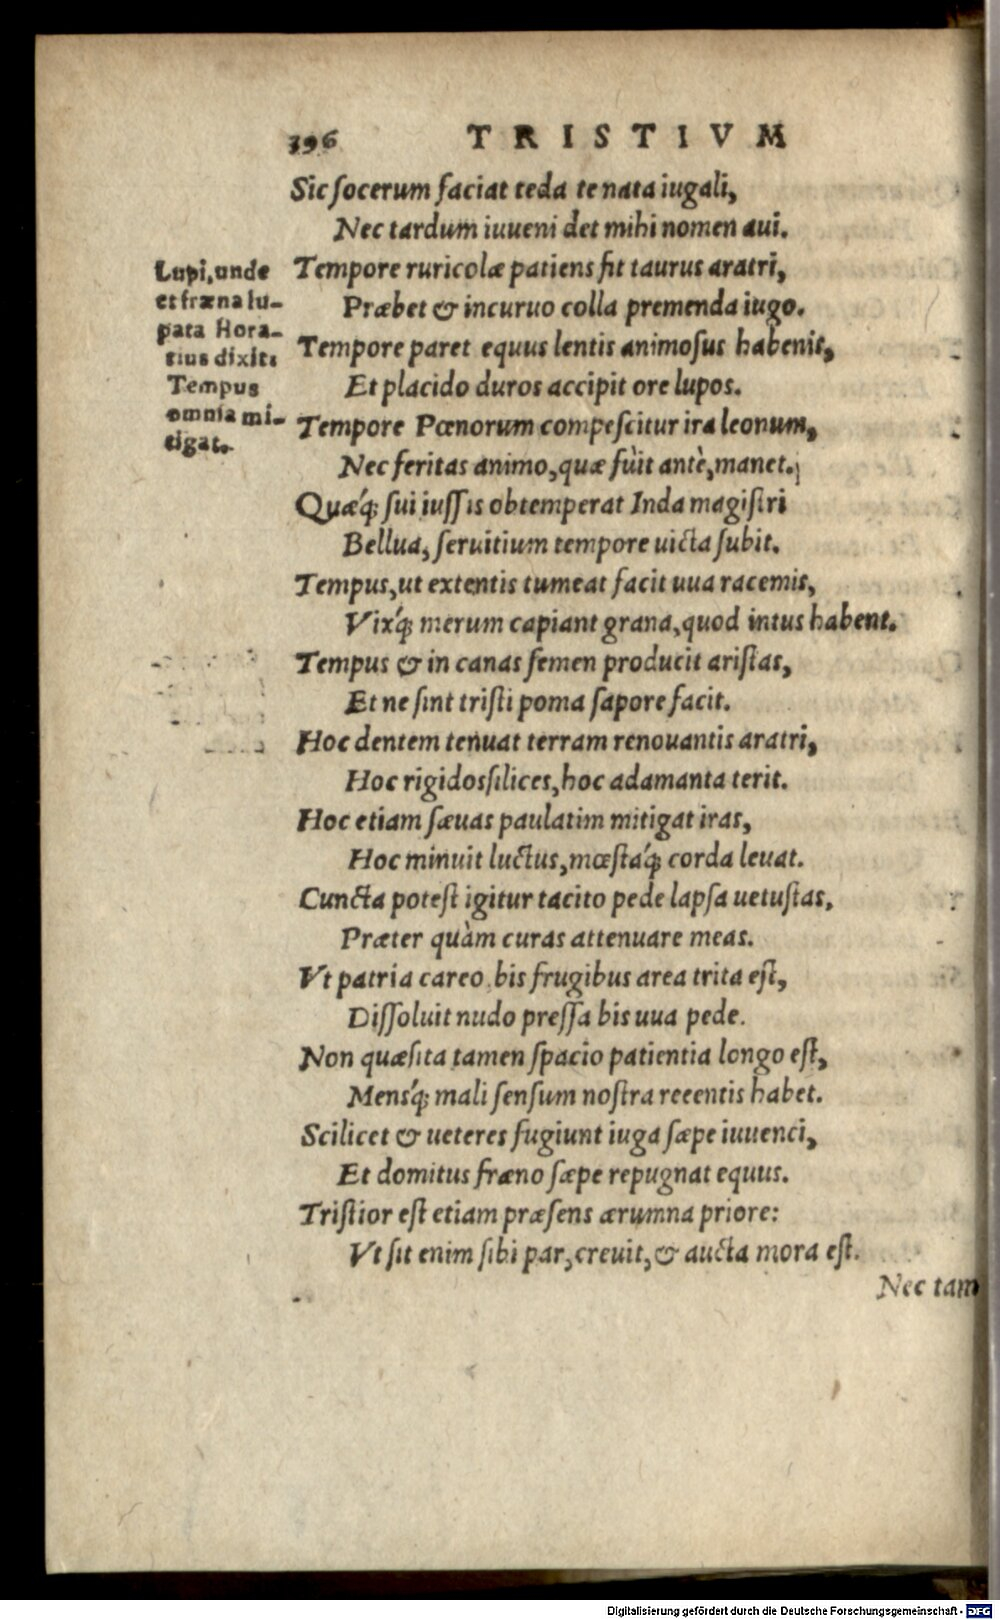 396 TRISTIVM
Sic socerum faciat teda te nata iugali,
Nec tardum iuueni det mihi nomen aui.
Tempore ruricolæ patiens fit taurus aratri,
Præbet & incuruo colla premenda iugo.
Tempore paret equus lentis animosus habenis,
Et placido duros accipit ore lupos.
Tempore Pœnorum compescitur ira leonum,
Nec feritas animo, quæ fuit antè, manet.
Quæq́; sui iussis obtemperat Inda magistri
Bellua, seruitium tempore uicta subit.
Tempus, ut extentis tumeat facit uua racemis,
Vixq́; merum capiant grana, quod intus habent.
Tempus & in canas semen producit aristas,
Et ne sint tristi poma sapore facit.
Hoc dentem tenuat terram renouantis aratri,
Hoc rigidos silices, hoc adamanta terit.
Hoc etiam sæuas paulatim mitigat iras,
Hoc minuit luctus, mœstaq́; corda leuat.
Cuncta potest igitur tacito pede lapsa uetustas,
Præter quàm curas attenuare meas.
Vt patria careo, bis frugibus area trita est,
Dissoluit nudo pressa bis uua pede.
Non quæsita tamen spacio patientia longo est,
Mensq́; mali sensum nostra recentis habet.
Scilicet & ueteres fugiunt iuga sæpe iuuenci,
Et domitus fræno sæpe repugnat equus.
Tristior est etiam præsens ærumna priore:
Vt sit enim sibi par, creuit, & aucta mora est.
Nec tam
Lupi, unde
et fræna lu-
pata Hora-
tius dixit:
Tempus
omnia mi-
tigat.
Digitalisierung gefördert durch die Deutsche Forschungsgemeinschaft - DFG